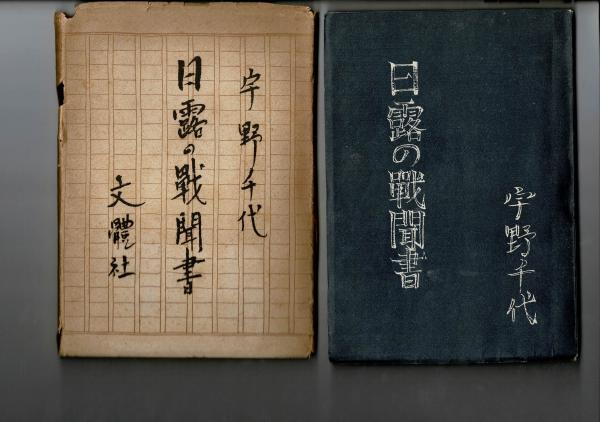 宇野千代
日露の戰聞書
文體社
日露の戰聞書
宇野千代